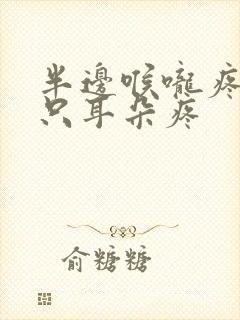 半邊喉嚨疼
只耳朵疼
俞糖糖